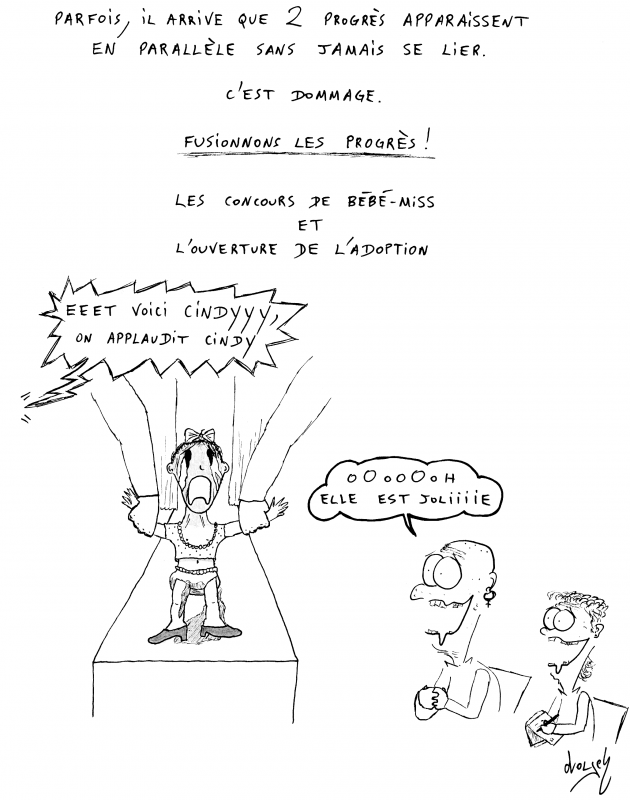 PARFOIS, IL ARRIVE QUE 2 PROGRÈS APPARAISSENT
EN PARALLÈLE SANS JAMAIS SE LIER.
C'EST DOMMAGE.
FUSIONNONS LES PROGRÈS !
LES CONCOURS DE BÉBÉ-MISS
ET
L'OUVERTURE DE L'ADOPTION
EEET VOICI CINDYYY,
ON APPLAUDIT CINDY
OOOOOOH
ELLE EST JOLIIIIE